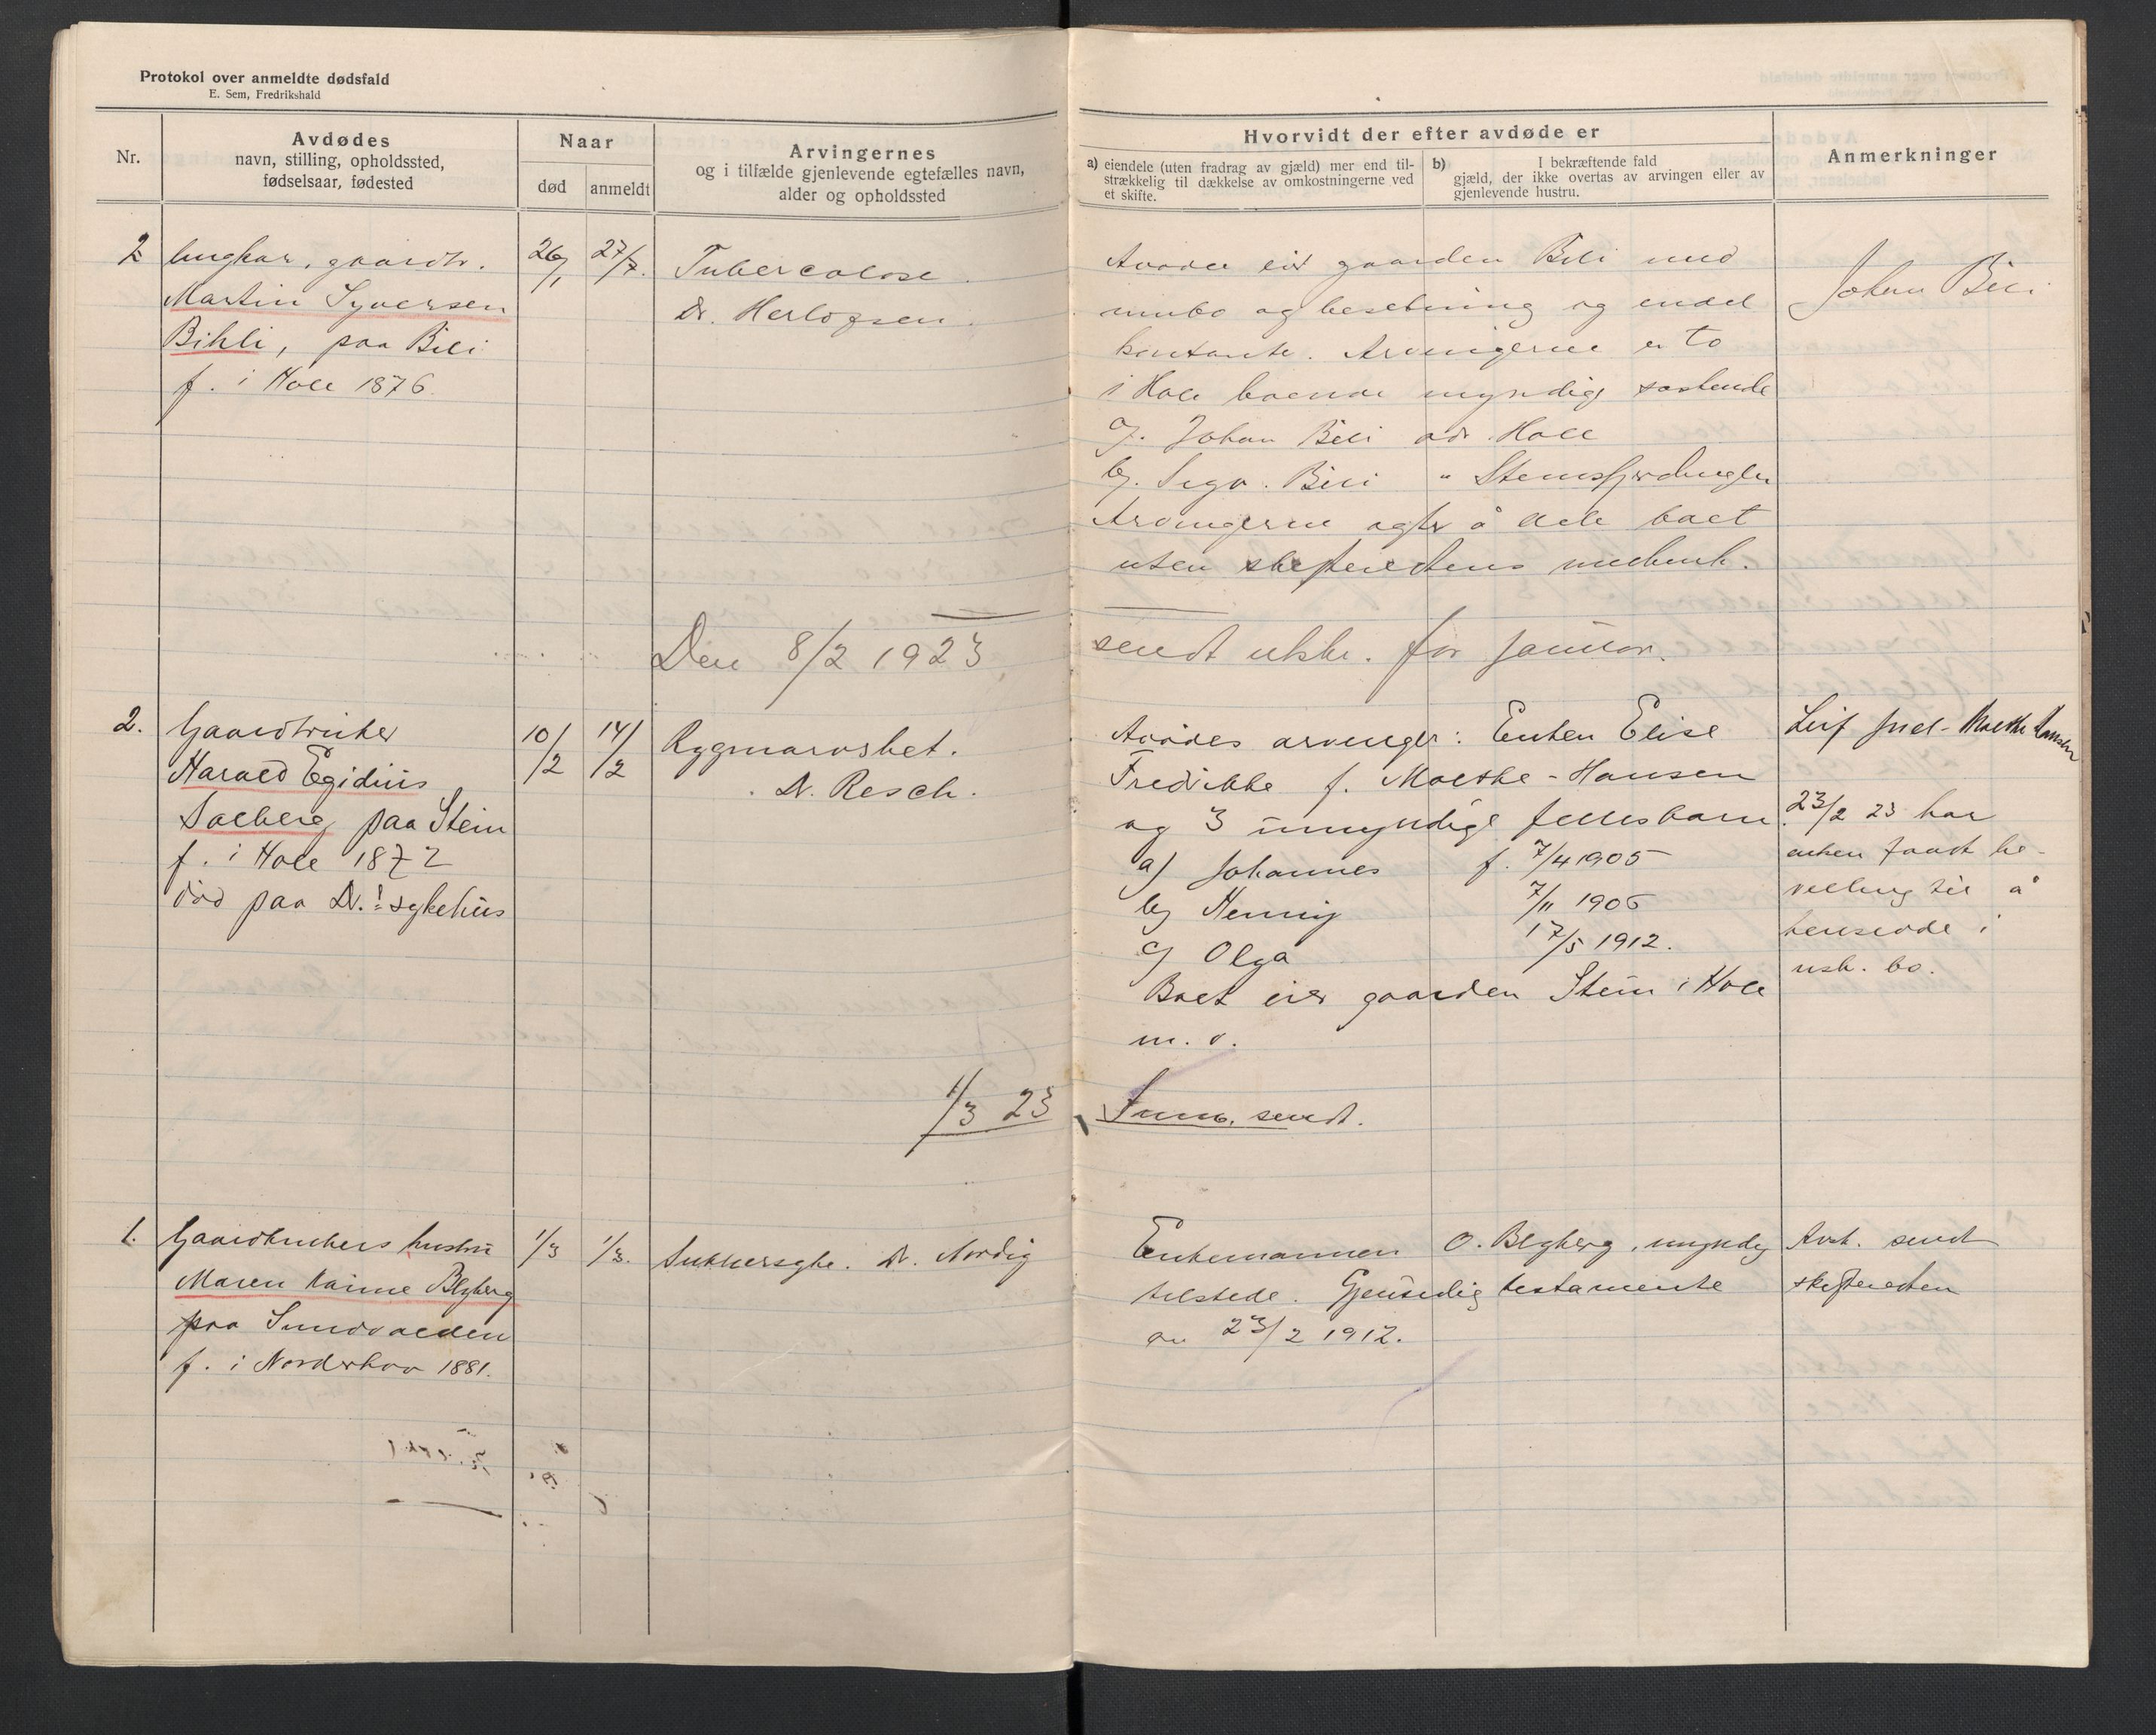 Protokol over anmeldte dødsfald
E. Sem, Fredrikshald
Nr.
Avdødes
navn, stilling, opholdssted,
fødselsaar, fødested
Naar
død
anmeldt
Arvingernes
og i tilfælde gjenlevende egtefælles navn,
alder og opholdssted
Hvorvidt der efter avdøde er
a) eiendele (uten fradrag av gjæld) mer end til-
strækkelig til dækkelse av omkostningerne ved
et skifte.
b) I bekræftende fald
gjæld, der ikke overtas av arvingen eller av
gjenlevende hustru.
Anmerkninger
2 Ungkar, gaardbr.
Martin Syversen
Bihli, paa Bili
f. i Hole 1876.
26/1
Tuberculose.
Dr. Herlofsen.
Avdøde eier gaarden Bili med
innbo og besetning og endel
kontante. Arvingerne er to
i Hole boende myndige søskende
Johan Bili adr. Hole
b) Bili "
Arvingerne agter å dele boet
uten skifterettens medvirk.
Johan Bili
Den 8/2 1923
sendt utskr. for januar.
2. Gaardbruker
Harald Egidius
Solberg paa Stein
f. i Hole 1872
død paa Dr.! sykehus
10/2
14/2
Rygmarvsbet.
Dr. Resch.
Avdødes arvinger: Enken Elise
Fredrikke f. Molthe-Hansen
og 3 umyndige fellesbarn.
a) Johannes f. 7/4 1905
b) Henny 7/11 1906
c) Olga 17/5 1912.
Boet eier gaarden Stein i Hole
m. v.
Leif Molthe Hansen
23/2 23 har
enken faat be-
villing til å
hensidde i
usk. bo.
1/3 23
sendt.
1. Gaardbrukers hustru
Maren Blyberg
paa Sundvolden
f. i Norderhov 1881.
1/3
1/3.
Sukkersyke. Dr. Nordig
Enkemannen O. Blyberg, myndig
tilstede. Gjensidig testamente
av 23/2 1912.
Avsk. sendt
skifteretten